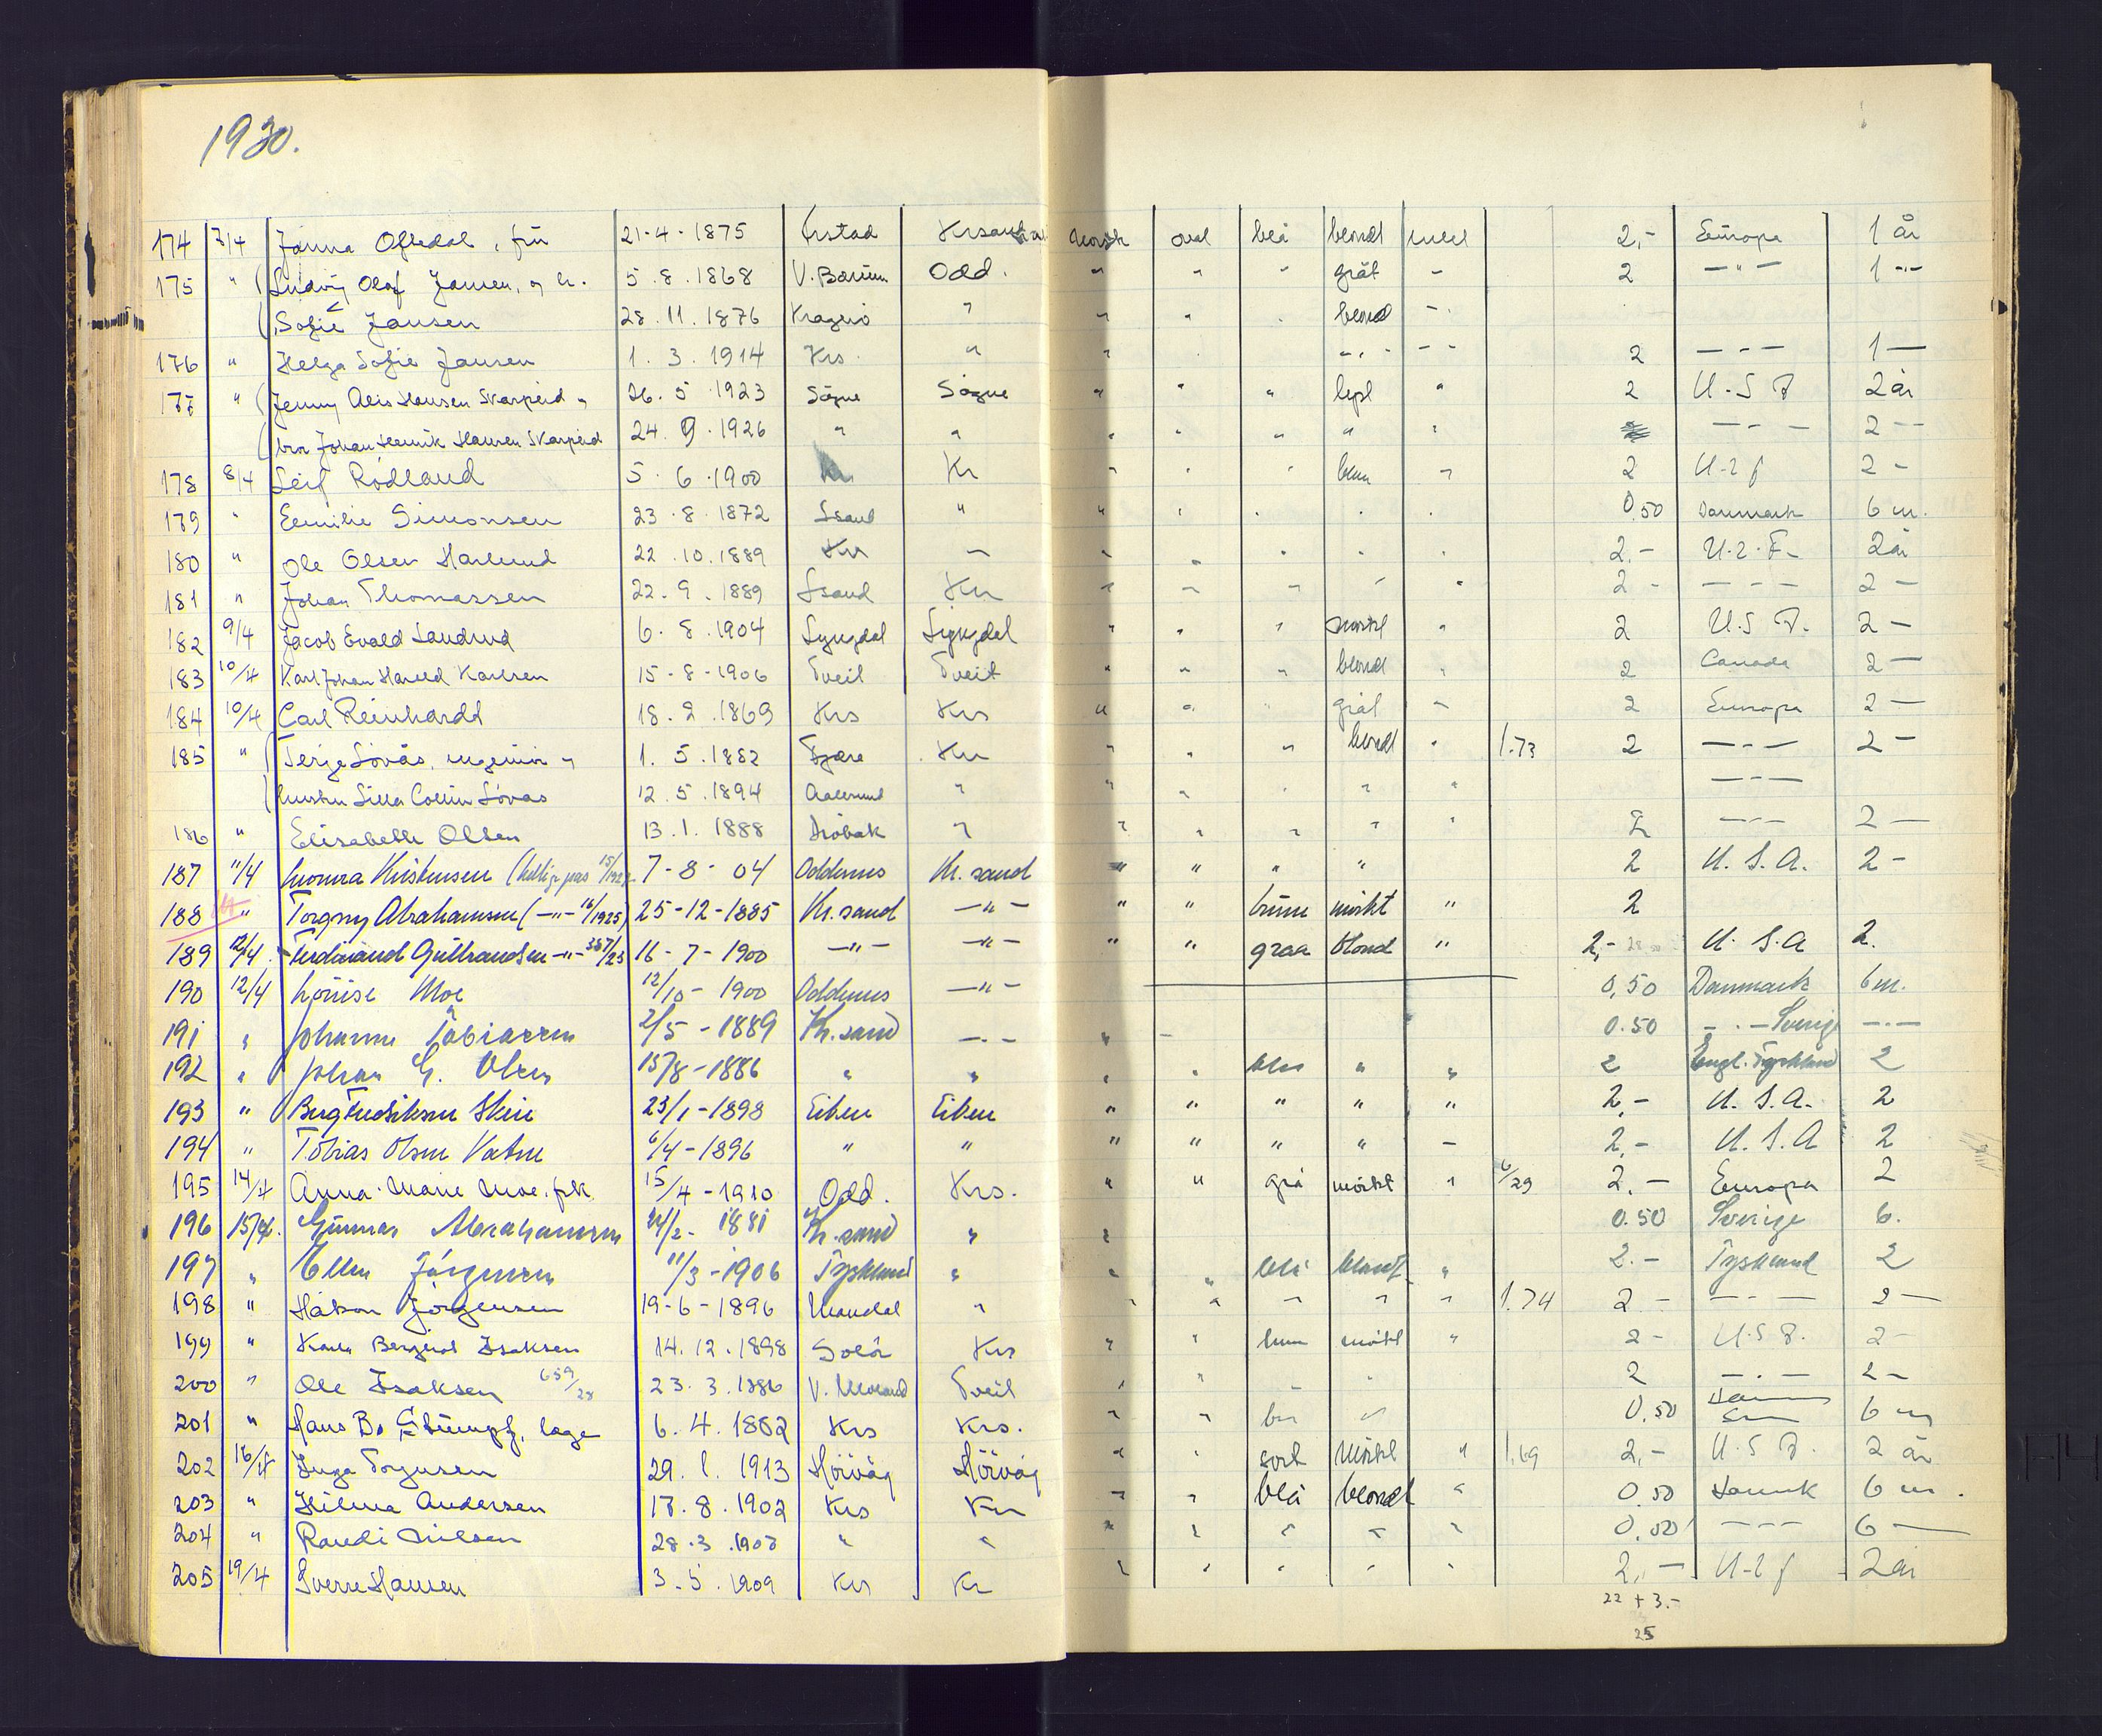 1930.
174 7/4 Janna Oftedal, frü 21-4-1875 Krsand norsk oval blå blondt 2,- Europa 1 år
175 " Ludvig Olaf Jansen, og h. 5.8.1868 V. Bærum Odd. " " " gråt - 2 -"- 1 -"-
Sofie Jansen 28.11.1876 Kragerø " " " " blond -
176 " Helga Sofie Jansen 1.3.1914 Krs. " " -"- - - 2 - - - 1 -
177 " Jenny Alis Hansen Skarpeid og 26.5.1923 Søgne Søgne " " " " 2 U.S.A 2 år
bror Johan Henrik Hansen Skarpeid 24.9.1926 " " " " " " " - - - 2 - -
178 8/4 Leif Rödland 5.6.1900 Kr " " " 2 2 -
179 " Emilie Simonsen 23.8.1872 " " " " " " 0.50 Danmark 6 m.
180 " Ole Olsen 22.10.1889 Krs " " " " " " 2.- 2 år
181 " Johan Thomassen 22.9.1889 Krs " " " " " 2 - - - - 2 -
182 9/4 Jacob Evald 6.8.1904 Lyngdal Lyngdal " " " mørkt " 2 U.S.A. 2 -
183 10/4 Karl Johan Harald Karlsen 15-8-1906 Tveit Tveit " " " blond " 2 Canada 2 -
184 10/4 Carl Reinhardt 18.2.1869 Krs Krs " " " gråt " 2 Europa 2 -
185 " Terje Lövås, ingeniør og 1.5.1882 Fjære Krs " " " blond " 1.73 2 - - - 2 -
hustru Lilla Collin Lövås 12.5.1894 Aalesund " " " " " " - - -
186 " Elisabeth Olsen 13.1.1888 Drøbak " " " " " " 2 - - - 2 -
187 11/4 Kristensen 7-8-04 Oddernes Kr. sand " " " " 2 U.S.A. 2 -
188 " Torgny Abrahamsen (-"- 16/1925) 25-12-1885 Kr. sand -"- " " brune mørkt " 2
189 12/4 Ferdinand Gulbrandsen -"- 357/23 16-7-1900 -"- -"- " " graa blond " 2,- U.S.A 2.
190 12/4 Louise Moe 12/10-1900 Oddernes -"- 0,50 Danmark 6 m.
191 " Johanne Tobiassen 2/5-1889 Kr. sand -"- " - 0.50 -"- Sverige -"-
192 " Johan G. Olsen 15/8-1886 " " " " blaa " " 2 Engl. Tyskland 2
193 " Berg Fredriksen 23/1-1898 Eiken Eiken " " " " " 2,- U.S.A. 2
194 " Tobias Olsen Vatne 6/4-1896 " " " " " " - 2,- U.S.A 2
195 14/4 Anna Marie Moe, frk 15/4-1910 Odd. Krs. " " grå mørkt " 6/29 2,- Europa 2
196 15/4. Gunnar Abrahamsen 24/2-1881 Kr. sand " " 0.50 Sverige 6.
197 " Ellen Jörgensen 11/3-1906 Tyskland " " " blå blond " 2.- Tyskland 2
198 " Håkon Jörgensen 19-6-1896 Mandal " " " " " " 1.74 2 - - - - 2 -
199 " Karen Bergliot Isaksen 14.12.1898 Solør Krs " " brun mørkt " 2 - U.S.A. 2 -
200 " Ole Isaksen 659/28 23.3.1886 V. Moland Tveit " " - " 2 - - - 2 -
201 " Hans Bo Stümpf, læge 6.4.1882 Krs Krs. " " " 0.50 6 m
202 16/4 Inga Torgersen 29.1.1913 Hövåg Hövåg " " sort mørkt " 1.69 2,- U.S.A. 2 år
203 " Hilma Andersen 17.8.1902 Krs Krs " " blå blond " 0.50 Danmk 6 m.
204 " Randi Nilsen 28.3.1908 " " " " " " " 0.50 - - - 6 -
205 19/4 Sverre Hansen 3.5.1909 Krs Kr " " " " " 2,- 2 år
22 + 3.-
25